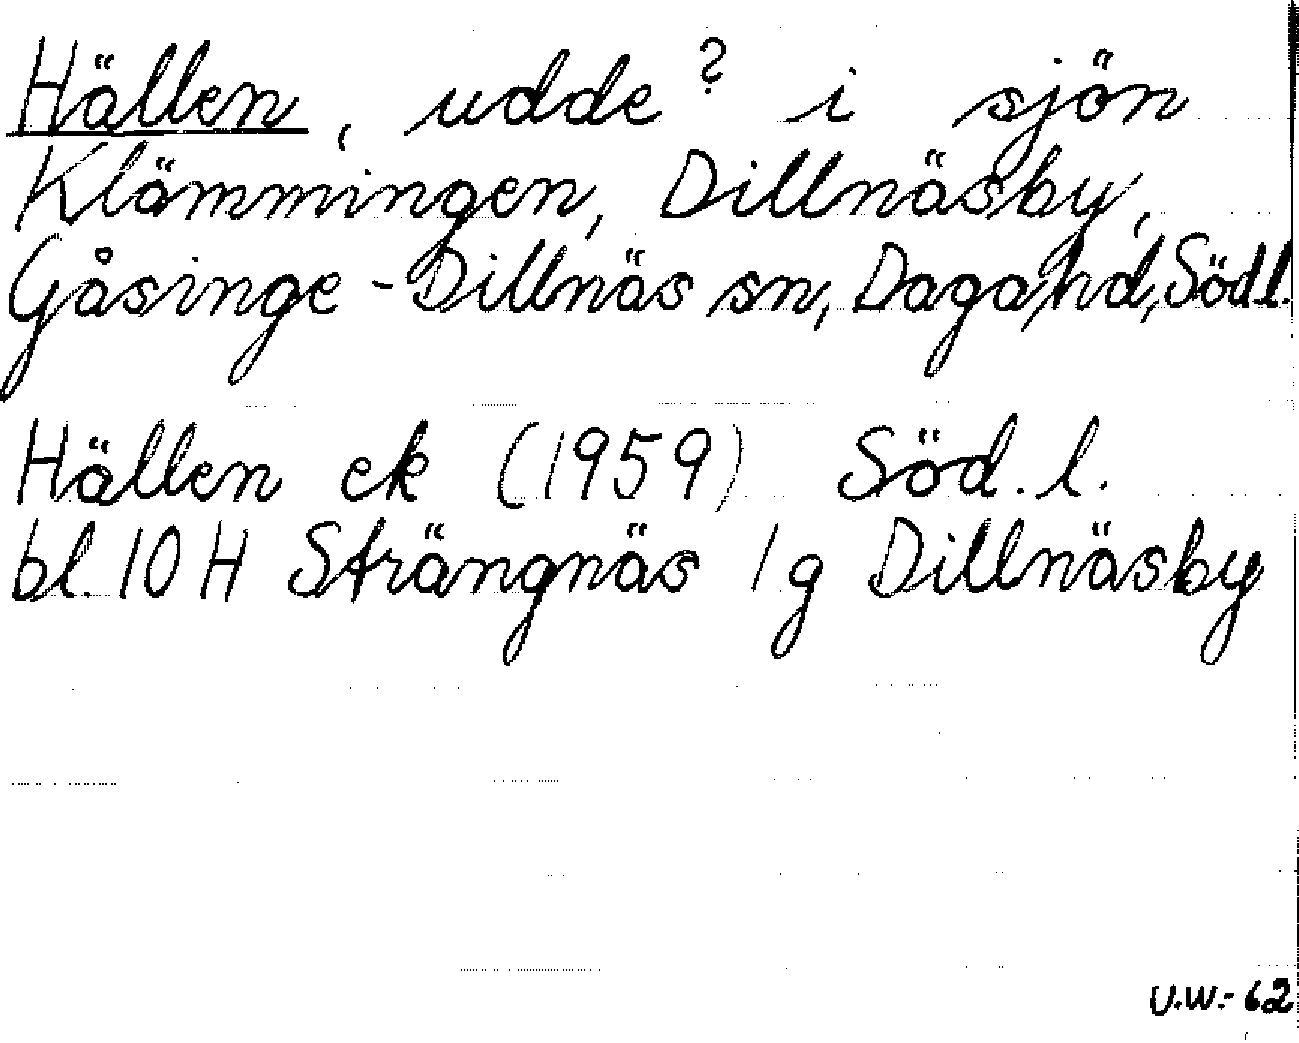 Hällen, udde? i sjön
Klämmingen, Dillnäsby,
Gåsinge-Dillnäs sn, Daga hd, Södl.
Hällen ek (1959) Söd. l.
bl. 10 H Strängnäs 1g Dillnäsby
U.W.-62